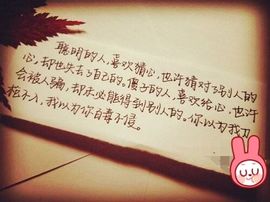 聪明的人,喜欢猜心,也许猜对了别人的
心,却也失去了自己的。傻子的人,喜欢给心,也许
会被人骗,却未必能得到别人的。你以为我刀
枪不入,我以为你百毒不侵。